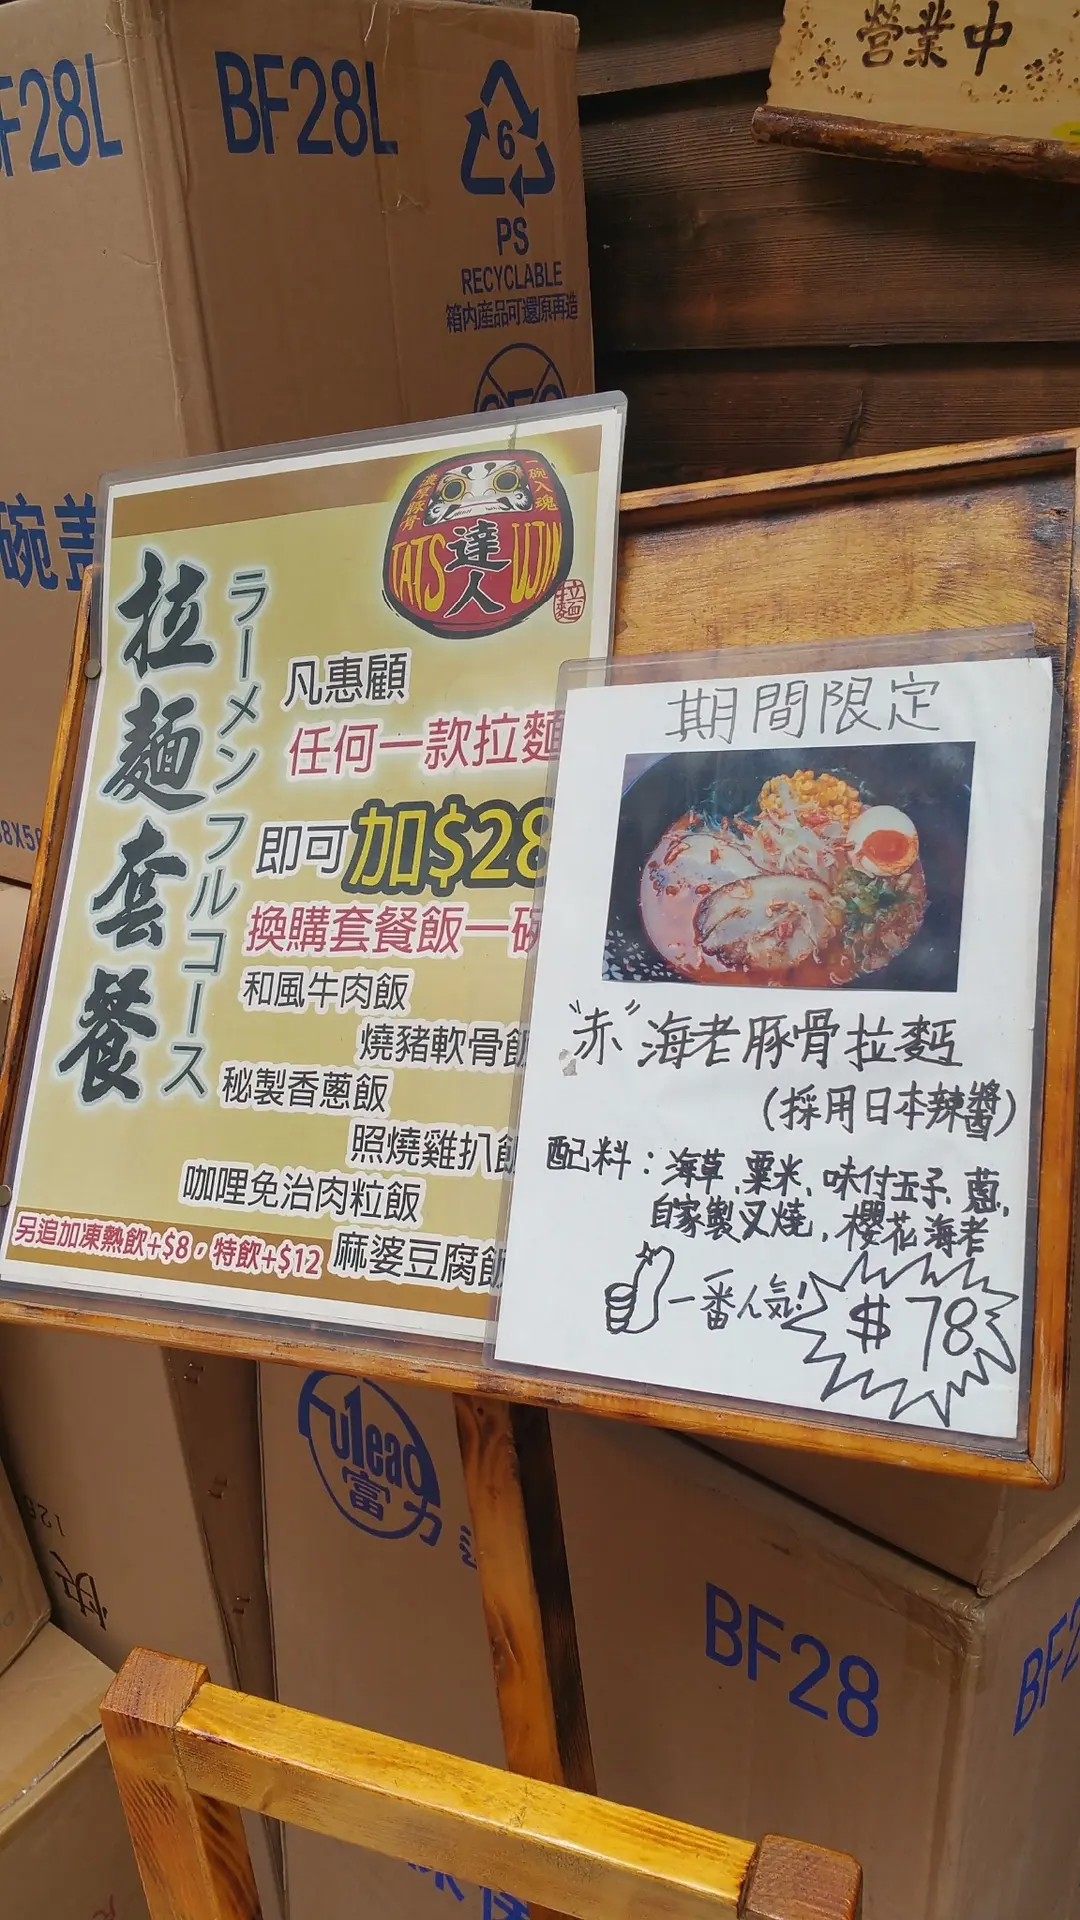 營業中
BF28L
BF28L
6
PS
RECYCLABLE
箱内産品可還原再造
碗蓋
濃厚豚骨
碗入魂
TATSUJIN
達人
拉麵
拉麵套餐
ラーメンフルコース
凡惠顧
任何一款拉麵
即可加$28
換購套餐飯一碗
和風牛肉飯
燒豬軟骨飯
秘製香蔥飯
照燒雞扒飯
咖哩免治肉粒飯
麻婆豆腐飯
另追加凍熱飲+$8，特飲+$12
期間限定
"赤"海老豚骨拉麵
(採用日本辣醬)
配料：海草,粟米,味付玉子,蔥,
自家製叉燒,櫻花海老
一番人気!
$78
Fulead
富力
快
BF28
BF2